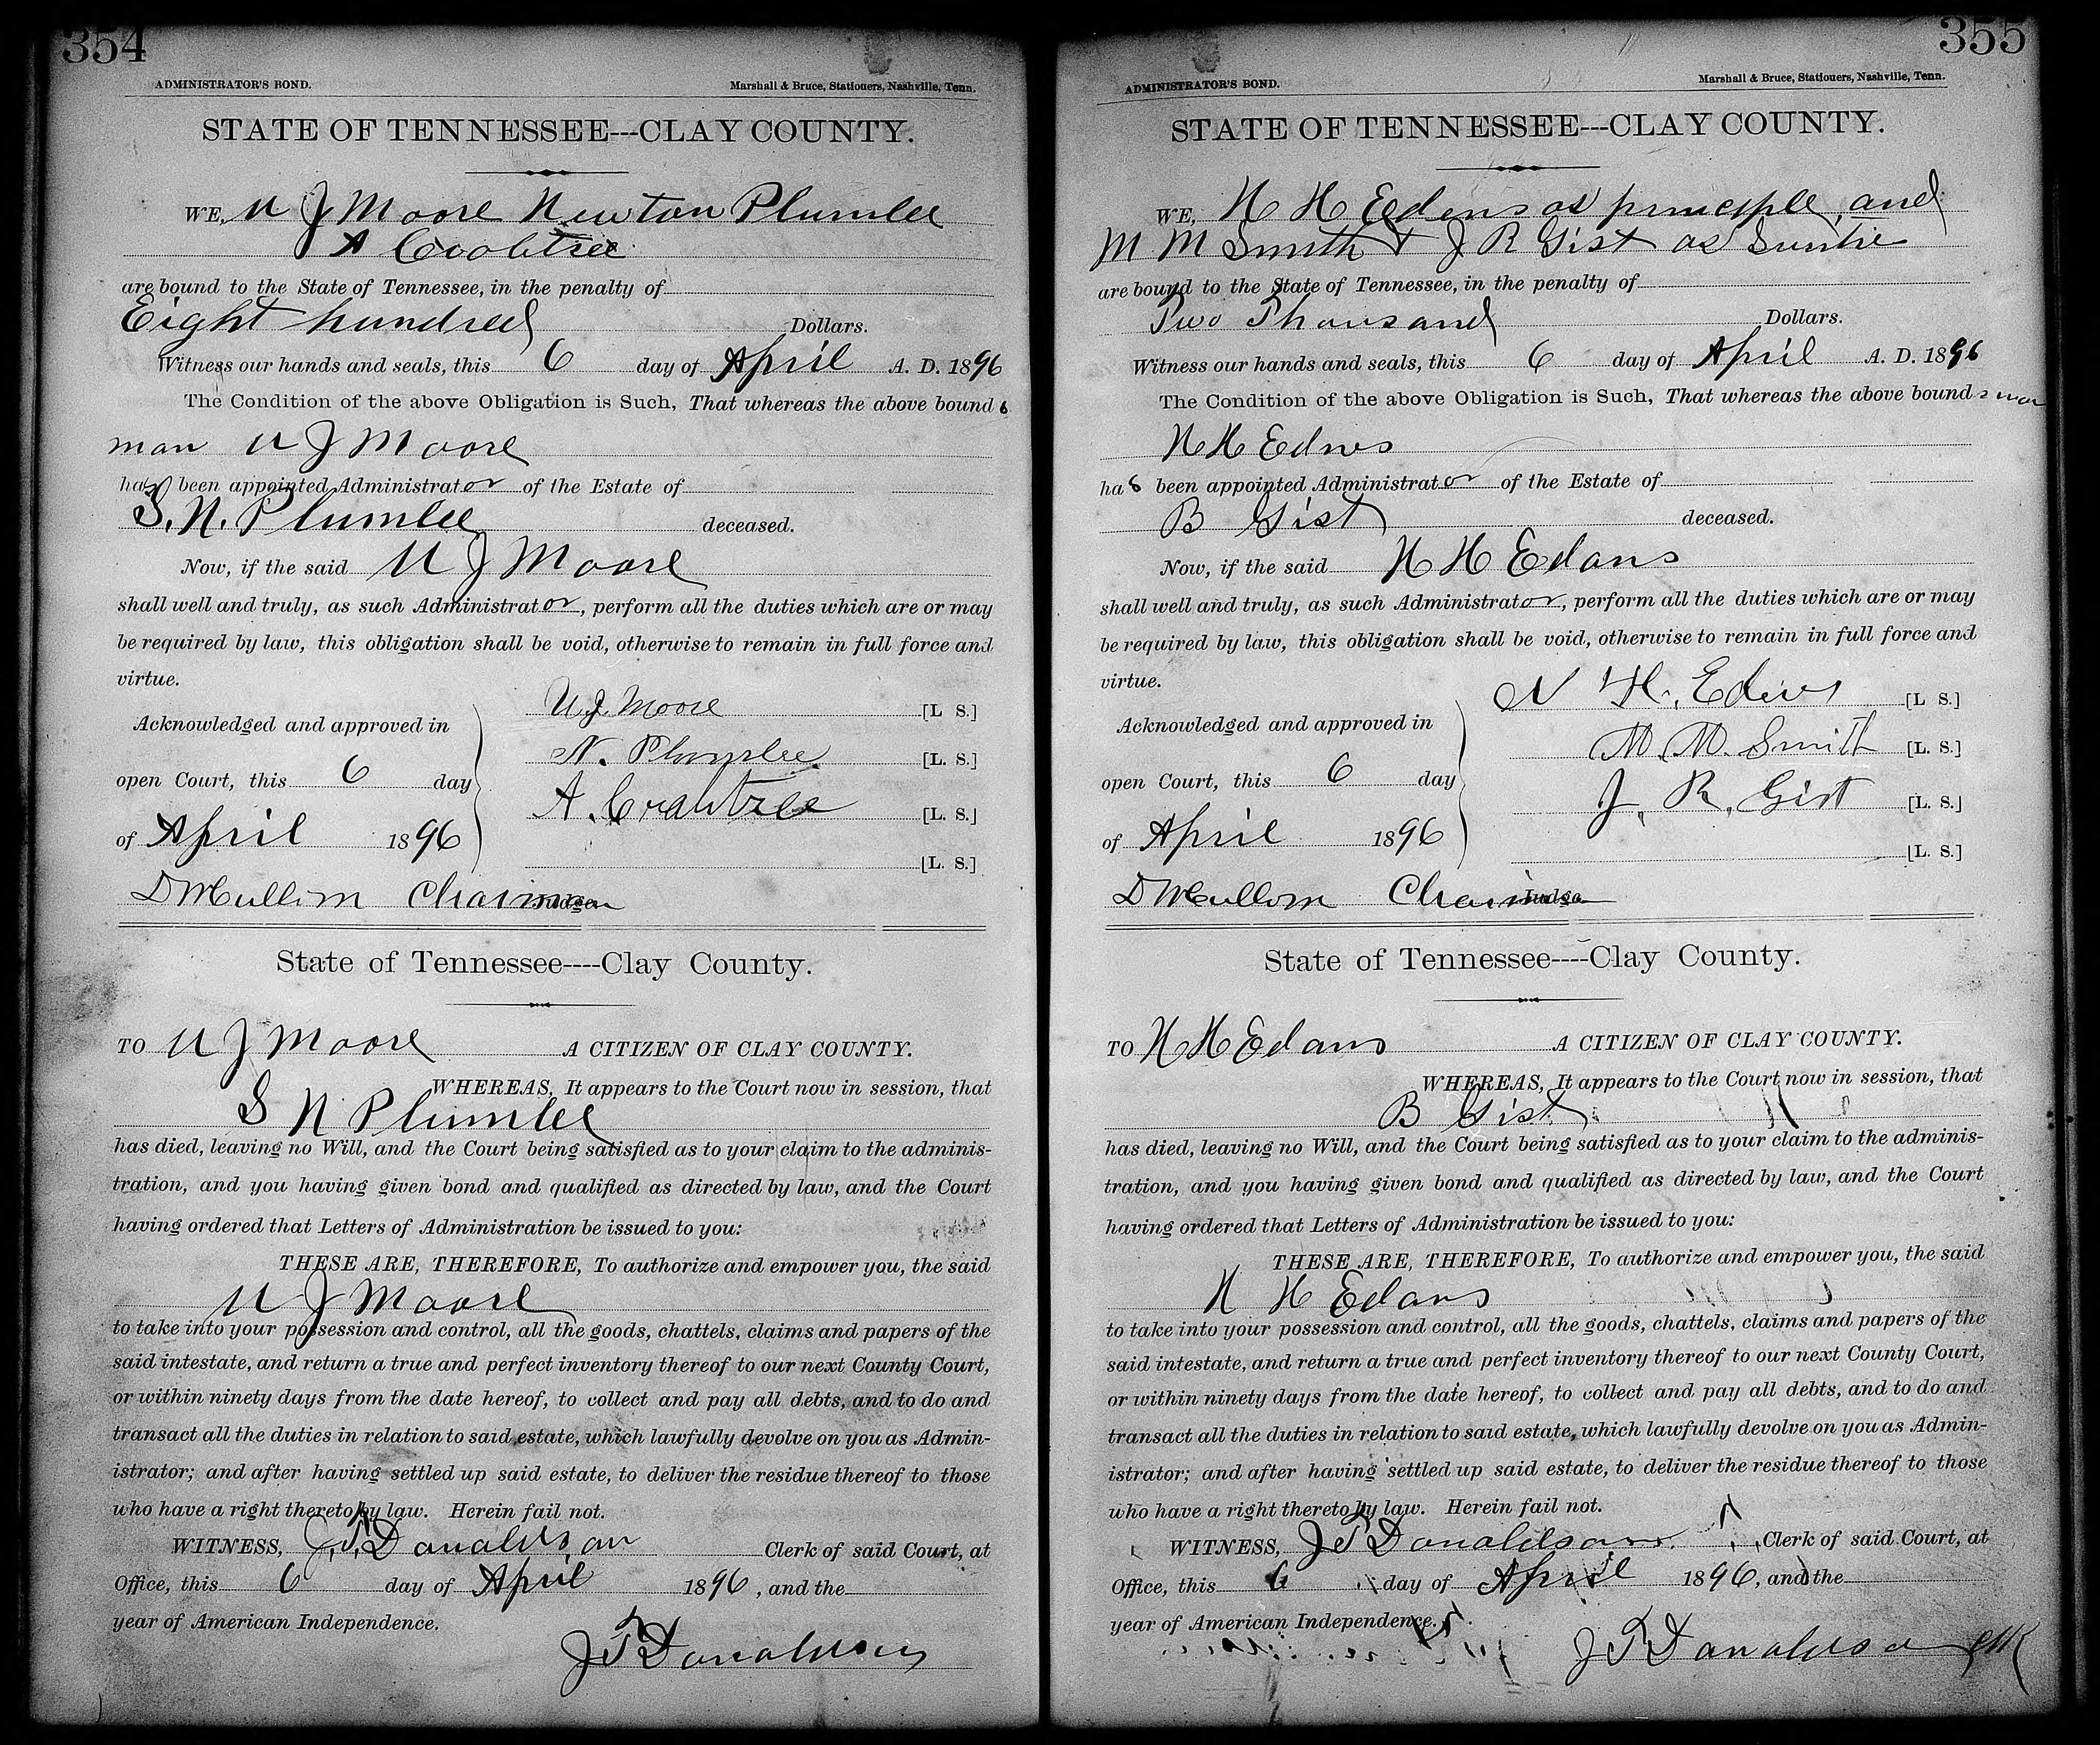 354
ADMINISTRATOR'S BOND. Marshall & Bruce, Stationers, Nashville, Tenn.
STATE OF TENNESSEE---CLAY COUNTY.
WE, U J Moore Newton Plumlee
A Crabtree
are bound to the State of Tennessee, in the penalty of
Eight hundred Dollars.
Witness our hands and seals, this 6 day of April A. D. 1896
The Condition of the above Obligation is Such, That whereas the above bound
man U J Moore
has been appointed Administrator of the Estate of
S. N. Plumlee deceased.
Now, if the said U J Moore
shall well and truly, as such Administrator, perform all the duties which are or may
be required by law, this obligation shall be void, otherwise to remain in full force and
virtue.
U J Moore [L S.]
Acknowledged and approved in
N. Plumlee [L. S.]
open Court, this 6 day
A. Crabtree [L. S.]
of April 1896
[L. S.]
D McCullom Chairman Judge
State of Tennessee----Clay County.
TO U J Moore A CITIZEN OF CLAY COUNTY.
WHEREAS, It appears to the Court now in session, that
S N Plumlee
has died, leaving no Will, and the Court being satisfied as to your claim to the adminis-
tration, and you having given bond and qualified as directed by law, and the Court
having ordered that Letters of Administration be issued to you:
THESE ARE, THEREFORE, To authorize and empower you, the said
U J Moore
to take into your possession and control, all the goods, chattels, claims and papers of the
said intestate, and return a true and perfect inventory thereof to our next County Court,
or within ninety days from the date hereof, to collect and pay all debts, and to do and
transact all the duties in relation to said estate, which lawfully devolve on you as Admin-
istrator; and after having settled up said estate, to deliver the residue thereof to those
who have a right thereto by law. Herein fail not.
WITNESS, J. T. Donaldson Clerk of said Court, at
Office, this 6 day of April 1896, and the
year of American Independence.
J T Donaldson
355
ADMINISTRATOR'S BOND. Marshall & Bruce, Stationers, Nashville, Tenn.
STATE OF TENNESSEE---CLAY COUNTY.
WE, N H Edens as principle, and
M M Smith & J R Gist as
are bound to the State of Tennessee, in the penalty of
Two Thousand Dollars.
Witness our hands and seals, this 6 day of April A. D. 1896
The Condition of the above Obligation is Such, That whereas the above bound
N H Edns
has been appointed Administrator of the Estate of
B Gist deceased.
Now, if the said N H Edans
shall well and truly, as such Administrator, perform all the duties which are or may
be required by law, this obligation shall be void, otherwise to remain in full force and
virtue.
N H. Edens [L S.]
Acknowledged and approved in
M. M. Smith [L. S.]
open Court, this 6 day
J. R. Gist [L. S.]
of April 1896
[L. S.]
D McCullom Chairman Judge
State of Tennessee----Clay County.
TO N H Edans A CITIZEN OF CLAY COUNTY.
WHEREAS, It appears to the Court now in session, that
B Gist
has died, leaving no Will, and the Court being satisfied as to your claim to the adminis-
tration, and you having given bond and qualified as directed by law, and the Court
having ordered that Letters of Administration be issued to you:
THESE ARE, THEREFORE, To authorize and empower you, the said
N H Edans
to take into your possession and control, all the goods, chattels, claims and papers of the
said intestate, and return a true and perfect inventory thereof to our next County Court,
or within ninety days from the date hereof, to collect and pay all debts, and to do and
transact all the duties in relation to said estate, which lawfully devolve on you as Admin-
istrator; and after having settled up said estate, to deliver the residue thereof to those
who have a right thereto by law. Herein fail not.
WITNESS, J T Donaldson Clerk of said Court, at
Office, this 6 day of April 1896, and the
year of American Independence.
J T Donaldson Clk